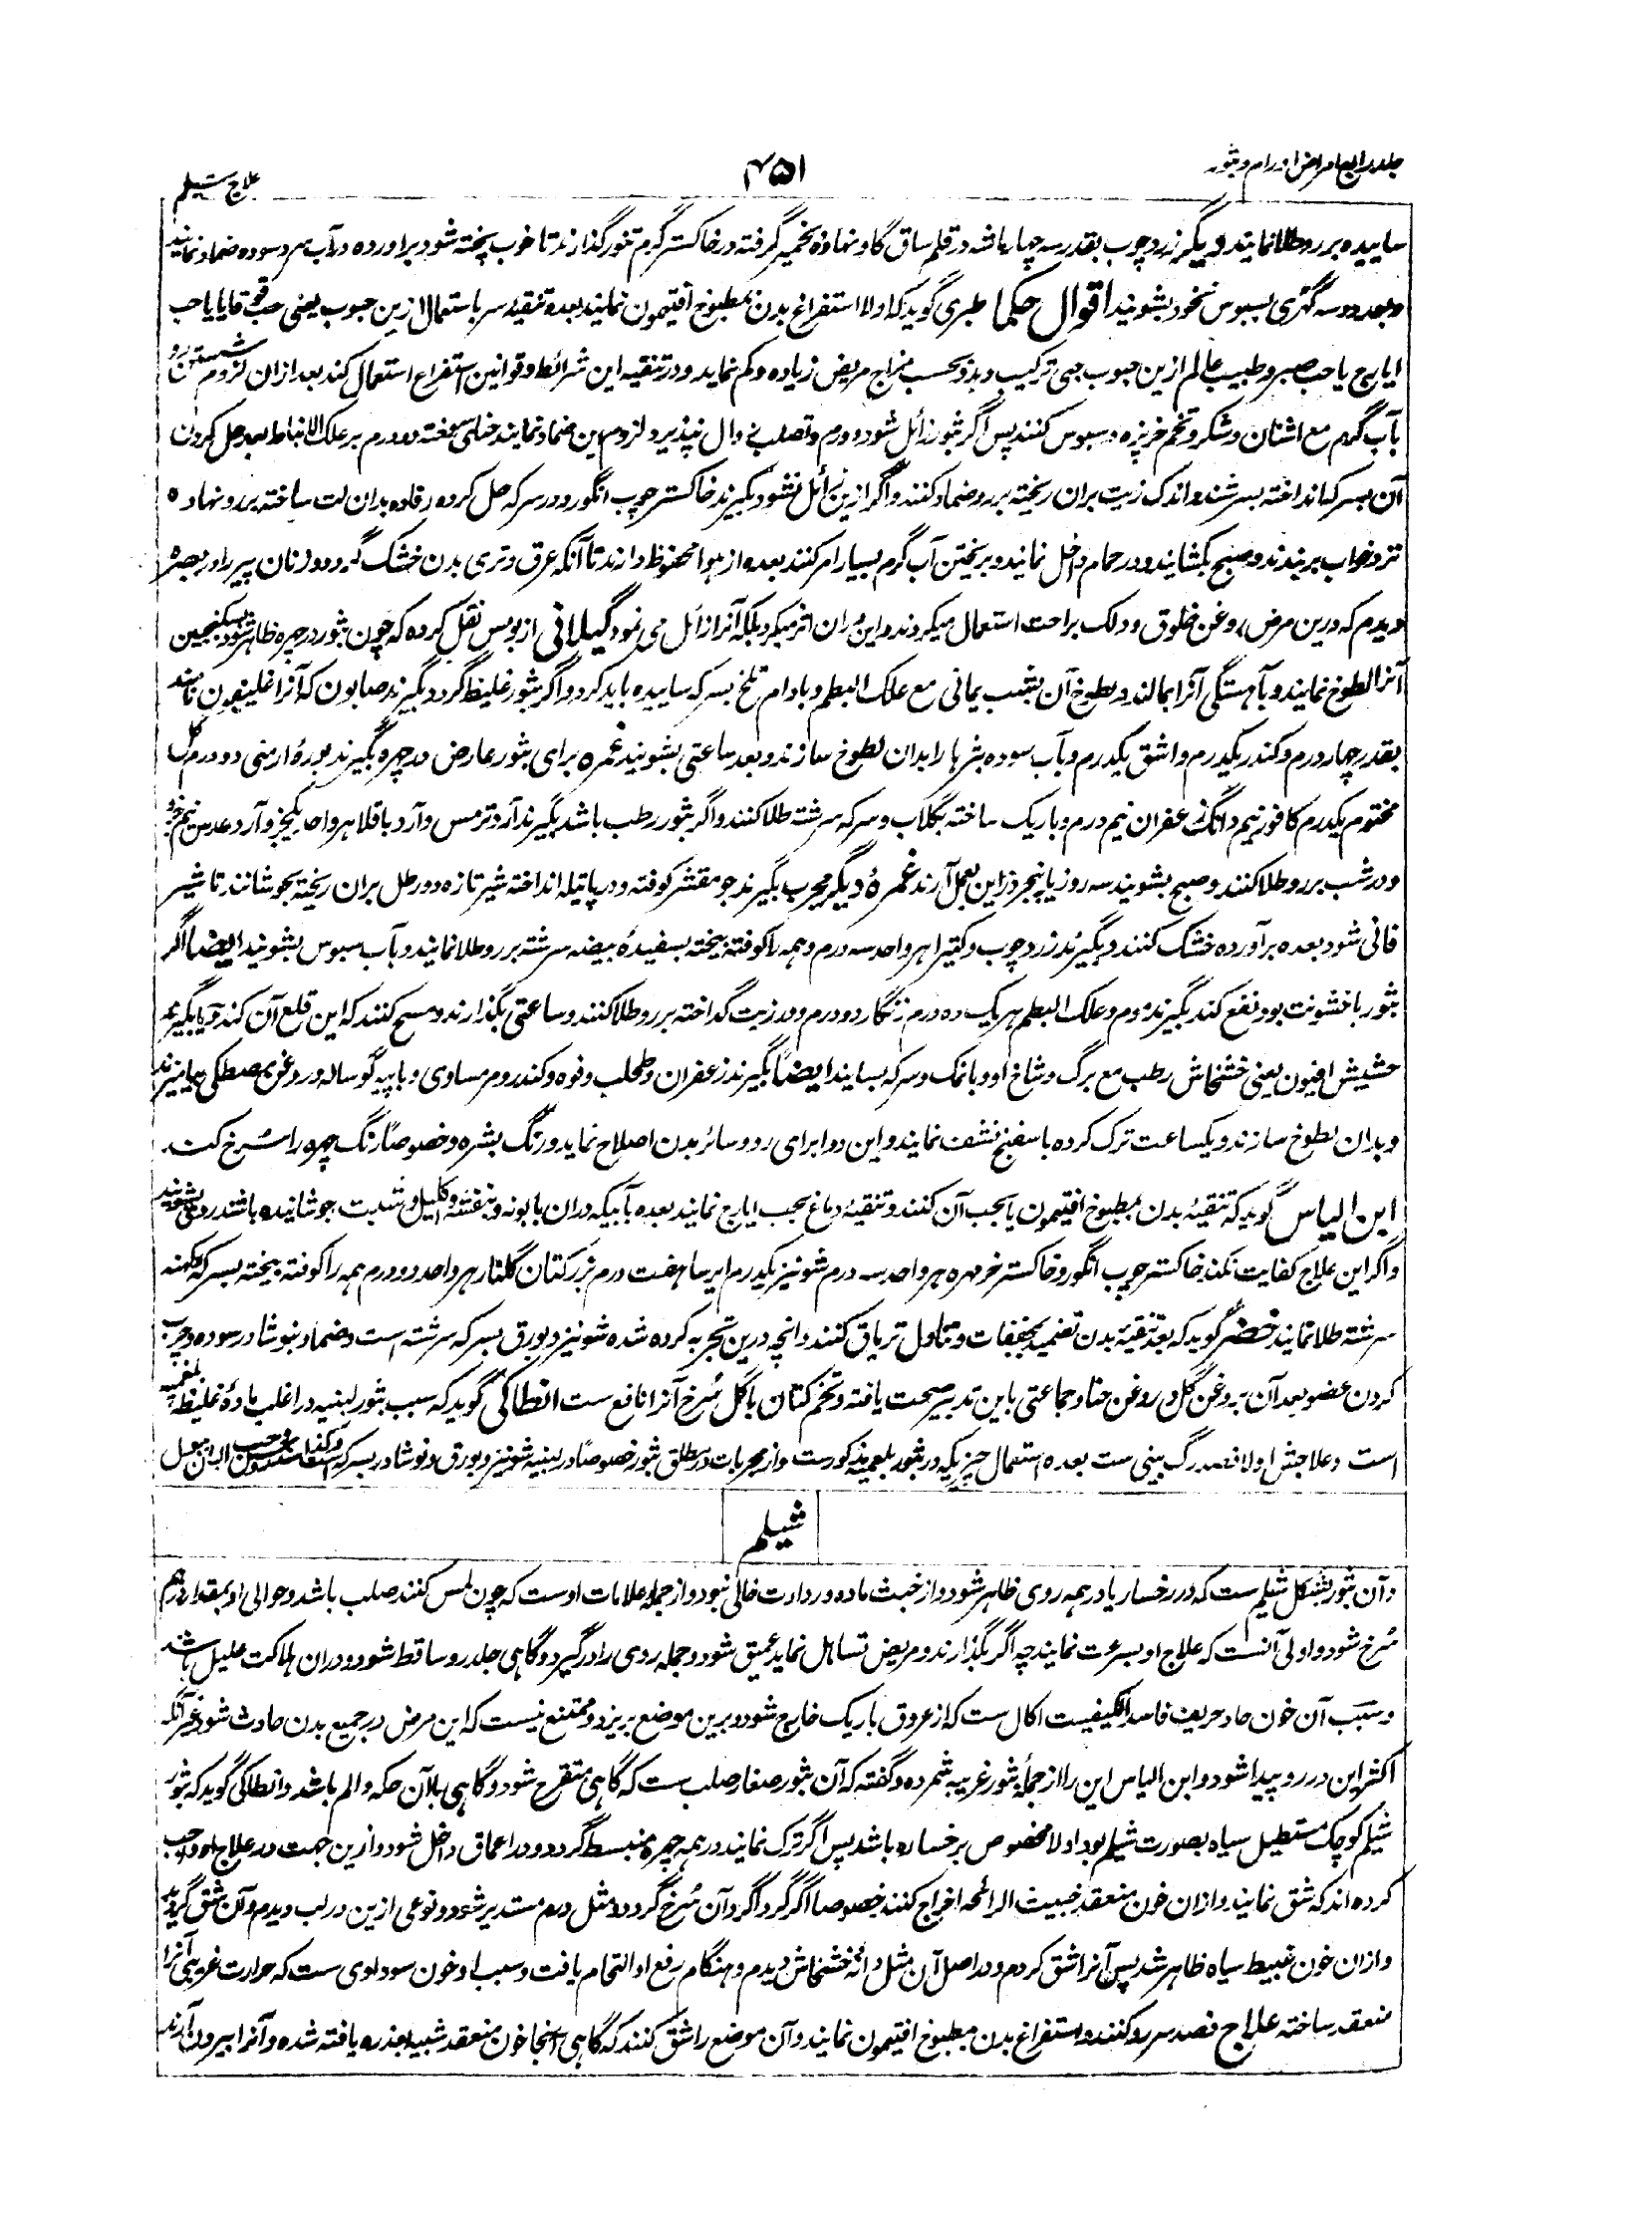 جلد رابع امراض اورام و بثور
۴۵۱
علاج شیلم
ساییده بر رو طلا نمایند دیگر زرد چوب بقدر سه چهار ماشه در قلم ساق گاو نهاده بخمیر گرفته در خاکستر گرم تنور گذارند تا خوب پخته شود برآورده در آب سرد سوده ضماد نمایند
و بعد دو سه گهڑی بسبوس نخود بشویند اقوال حکما طبری گوید که اولا استفراغ بدن بمطبوخ افتیمون نمایند بعده تنقیه سر باستعمال ازین حبوب یعنی حب قوقایا یا حب
ایارج یا حب صبر و طبیب عالم ازین حبوب حبی ترکیب دهد و بحسب مزاج مریض زیاده و کم نماید و در تنقیه این شرائط و قوانین استفراغ استعمال کند بعد ازان لزوم شستن رو
بآب گرم مع اشنان و شکر و تخم خربزه و سبوس کنند پس اگر بثور زائل شود و ورم و تصلب زوال نپذیرد لزوم این ضماد نمایند خنثی سوخته دو درم بر علک الانباط بعد حل کردن
آن بسرکه انداخته بسرشند و اندک زیت بران ریخته بر رو ضماد کنند و اگر ازین زائل نشود بگیرند خاکستر چوب انگور و در سرکه حل کرده رفاده بدان لت ساخته بر رو نهاده
نزد خواب بربندند و صبح بکشایند و در حمام داخل نمایند و بریختن آب گرم بسیار امر کنند بعده از هوا محفوظ دارند تا آنکه عرق و تری بدن خشک گردد و زنان پیر را در بصره
دیدم که درین مرض روغن خلوق و دلک براحت استعمال میکردند و این دران اثر میکرد بلکه آنرا زائل می نمود گیلانی از بولس نقل کرده که چون بثور در چهره ظاهر شود بسکنجبین
آنرا لطوخ نمایند و بآهستگی آنرا بمالند و لطوخ آن بشب یمانی مع علک البطم و بادام تلخ بسرکه ساییده باید کرد و اگر بثور غلیظ گردد بگیرند صابون که آنرا غلیفون نامند
بقدر چهار درم و کندر یکدرم و اشق یکدرم و بآب سوده بثرها را بدان لطوخ سازند و بعد ساعتی بشویند غمره برای بثور عارض در چهره بگیرند بورهٔ ارمنی دو درم گل
مختوم یکدرم کافور نیم دانگ زعفران نیم درم و باریک ساخته بگلاب و سرکه سرشته طلا کنند و اگر بثور رطب باشد بگیرند آرد ترمس و آرد باقلا هر واحد یکجزو آرد عدس نیم جزو
و در شب بر رو طلا کنند و صبح بشویند سه روز یا پنجروز این بعمل آرند غمرهٔ دیگر مجرب بگیرند جو مقشر کوفته و در پاتیله انداخته شیر تازه دو رطل بران ریخته بجوشانند تا شیر
فانی شود بعده برآورده خشک کنند و بگیرند زرد چوب و کتیرا هر واحد سه درم و همه را کوفته بیخته بسفیدهٔ بیضه سرشته بر رو طلا نمایند و بآب سبوس بشویند ایضا اگر
بثور با خشونت بود نفع کند بگیرند موم و علک البطم هر یک ده درم زنگار دو درم و در زیت گداخته بر رو طلا کنند و ساعتی بگذارند و مسح کنند که این قلع آن کند و یا بگیرند
حشیش افیون یعنی خشخاش رطب مع برگ و شاخ او و بانمک و سرکه بسایند ایضاً بگیرند زعفران و طحلب و فوه و کندر و مر مساوی و با پیه گوساله و روغن مصطکی بیامیزند
و بدان لطوخ سازند و یکساعت ترک کرده باسفنج نشف نمایند و این دوا برای رو و سائر بدن اصلاح نماید و رنگ بشره و خصوصاً رنگ چهره را سرخ کند
ابن الیاس گوید که تنقیهٔ بدن بمطبوخ افتیمون یا بحب آن کنند و تنقیهٔ دماغ بحب ایارج نمایند بعده بآبیکه دران بابونه و بنفشه و اکلیل و شبت جوشانیده باشند روی بشویند
و اگر این علاج کفایت نکند خاکستر چوب انگور و خاکستر خرمهره هر واحد سه درم شونیز یکدرم ایرسا هفت درم بزر کتان گلنار هر واحد دو درم همه را کوفته بیخته بسرکه کهنه
سرشته طلا نمایند خضر گوید که بعد تنقیهٔ بدن تضمید بمجففات و تناول تریاق کنند و انچه درین تجربه کرده شده شونیز و بورق بسرکه سرشته است و ضماد بنوشادر سوده و چرب
کردن عضو بعد آن به روغن گل و روغن حنا و جماعتی باین تدبیر صحت یافته و تخم کتان با گل سرخ آنرا نافع ست انطاکی گوید که سبب بثور لبنیه در اغلب مادهٔ غلیظه بلغمیه
است و علاجش اولا فصد رگ بینی ست بعده استعمال چیزیکه در بثور بلغمیه مذکورست و از مجربات در مطلق بثور خصوصاً در لبنیه شونیز و بورق و نوشادر بسرکه
شیلم
و آن بثور بشکل شیلم ست که در رخسار یا در همه روی ظاهر شود و از خبث ماده و ردائت خالی نبود و از جمله علامات اوست که چون لمس کنند صلب باشد و حوالی او بمقدار درهم
سرخ شود و اولی آنست که علاج او بسرعت نمایند چه اگر بگذارند و مریض تساهل نماید عمیق شود و جمله روی را در گیرد و گاهی جلد رو ساقط شود و دران هلاکت علیل باشد
و سبب آن خون حاد حریف فاسد الکیفیت اکال ست که از عروق باریک خارج شود و برین موضع بریزد و ممتنع نیست که این مرض در جمیع بدن حادث شود غیر آنکه
اکثر این در رو پیدا شود و ابن الیاس این را از جملهٔ بثور غریبه شمرده و گفته که آن بثور صغار صلب ست که گاهی متقرح شود و گاهی بلا آن حکه و الم باشد و انطاکی گوید که بثور
شیلم کوچک مستطیل سیاه بصورت شیلم بود اولا مخصوص برخساره باشد پس اگر ترک نمایند در همه چهره منبسط گردد و در اعماق داخل شود و ازین جهت در علاج او واجب
کرده اند که شق نمایند و ازان خون منعقد خبیث الرائحه اخراج کنند خصوصاً اگر گرداگرد آن سرخ گردد و مثل درم مستدیر شود و نوعی ازین در لب دیدم و آن شق گردید
و ازان خون غبیط سیاه ظاهر شد پس آنرا شق کردم و در اصل آن مثل دانهٔ خشخاش دیدم و هنگام رفع او التحام یافت و سبب او خون سوداوی ست که حرارت غریبی آنرا
منعقد ساخته علاج فصد سررو کنند و استفراغ بدن بمطبوخ افتیمون نمایند و آن موضع را شق کنند که گاهی آنجا خون منعقد شبیه بعذره یافته شده و آنرا بیرون آرند